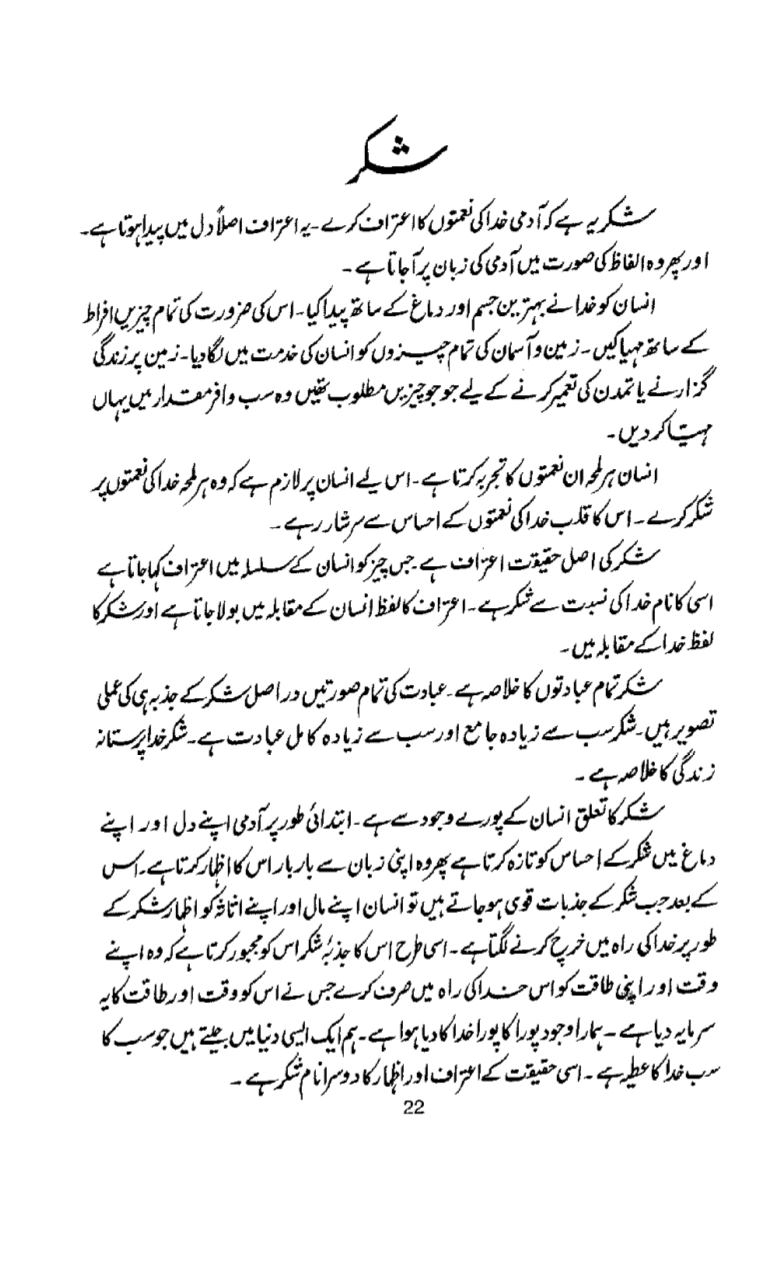 شکر
شکر یہ ہے کہ آدمی خدا کی نعمتوں کا اعتراف کرے۔ یہ اعتراف اصلاً دل میں پیدا ہوتا ہے۔
اور پھر وہ الفاظ کی صورت میں آدمی کی زبان پر آ جاتا ہے۔
انسان کو خدا نے بہترین جسم اور دماغ کے ساتھ پیدا کیا۔ اس کی ضرورت کی تمام چیزیں افراط
کے ساتھ مہیا کیں۔ زمین و آسمان کی تمام چیزوں کو انسان کی خدمت میں لگا دیا۔ زمین پر زندگی
گزارنے یا تمدن کی تعمیر کرنے کے لیے جو جو چیزیں مطلوب تھیں وہ سب وافر مقدار میں یہاں
مہیّا کر دیں۔
انسان ہر لمحہ ان نعمتوں کا تجربہ کرتا ہے۔ اس لیے انسان پر لازم ہے کہ وہ ہر لمحہ خدا کی نعمتوں پر
شکر کرے۔ اس کا قلب خدا کی نعمتوں کے احساس سے سرشار رہے۔
شکر کی اصل حقیقت اعتراف ہے۔ جس چیز کو انسان کے سلسلہ میں اعتراف کہا جاتا ہے
اسی کا نام خدا کی نسبت سے شکر ہے۔ اعتراف کا لفظ انسان کے مقابلہ میں بولا جاتا ہے اور شکر کا
لفظ خدا کے مقابلہ میں۔
شکر تمام عبادتوں کا خلاصہ ہے۔ عبادت کی تمام صورتیں دراصل شکر کے جذبہ ہی کی عملی
تصویر ہیں۔ شکر سب سے زیادہ جامع اور سب سے زیادہ کامل عبادت ہے۔ شکر خدا پرستانہ
زندگی کا خلاصہ ہے۔
شکر کا تعلق انسان کے پورے وجود سے ہے۔ ابتدائی طور پر آدمی اپنے دل اور اپنے
دماغ میں شکر کے احساس کو تازہ کرتا ہے پھر وہ اپنی زبان سے بار بار اس کا اظہار کرتا ہے۔ اس
کے بعد جب شکر کے جذبات قوی ہو جاتے ہیں تو انسان اپنے مال اور اپنے اثاثہ کو اظہار شکر کے
طور پر خدا کی راہ میں خرچ کرنے لگتا ہے۔ اسی طرح اس کا جذبۂ شکر اس کو مجبور کرتا ہے کہ وہ اپنے
وقت اور اپنی طاقت کو اس خدا کی راہ میں صرف کرے جس نے اس کو وقت اور طاقت کا یہ
سرمایہ دیا ہے۔ ہمارا وجود پورا کا پورا خدا کا دیا ہوا ہے۔ ہم ایک ایسی دنیا میں جیتے ہیں جو سب کا
سب خدا کا عطیہ ہے۔ اسی حقیقت کے اعتراف اور اظہار کا دوسرا نام شکر ہے۔
22